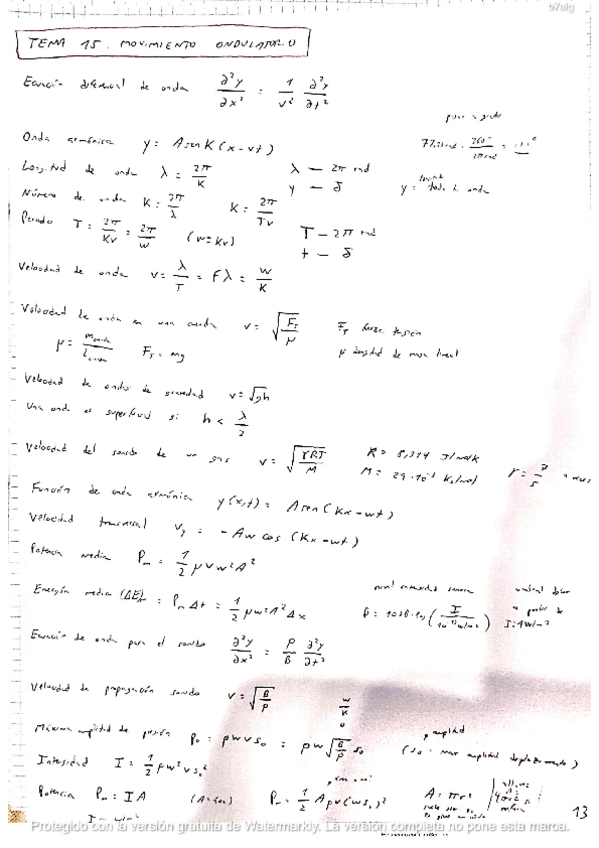 b7alg
TEMA 15. MOVIMIENTO ONDULATORIO
Ecuación diferencial de onda ∂²y/∂x² = 1/v² ∂²y/∂t²
Onda armónica y = A sen K (x - vt)
Longitud de onda λ = 2π/K λ — 2π rad
y — δ
Número de onda K = 2π/λ K = 2π/Tv
Periodo T = 2π/Kv = 2π/w (w = Kv) T — 2π rad
t — δ
Velocidad de onda v = λ/T = Fλ = w/K
Velocidad de onda en una cuerda v = √(F_T/μ) F_T fuerza tensión
μ = m cuerda/L cuerda F_T = mg μ densidad de masa lineal
Velocidad de ondas de gravedad v = √gh
Una onda es superficial si h < λ/2
Velocidad del sonido de un gas v = √(γRT/M) R = 8,314 J/molK
M = 29·10⁻³ Kg/mol γ = 7/5
Función de onda armónica y(x,t) = A sen (Kx - wt)
Velocidad transversal v_y = - Aw cos (Kx - wt)
Potencia media P_m = 1/2 μvw²A²
Energía media (ΔE)_m = P_m Δt = 1/2 μw²A²Δx
nivel intensidad sonora
β = 10dB·lg (I/10⁻¹²w/m²)
umbral dolor
a partir de
I = 1W/m²
Ecuación de onda para el sonido ∂²y/∂x² = ρ/B ∂²y/∂t²
Velocidad de propagación sonido v = √(B/ρ) w/K
Máxima amplitud de presión P₀ = ρwvs₀ = ρw√(B/ρ) s₀ (s₀ = max amplitud desplazamiento)
amplitud
Intensidad I = 1/2 ρw²vs₀²
Potencia P_m = IA (A = área) P_m = 1/2 Aρv(ws₀)² A = πr²
13
Protegido con la versión gratuita de Watermarkly. La versión completa no pone esta marca.